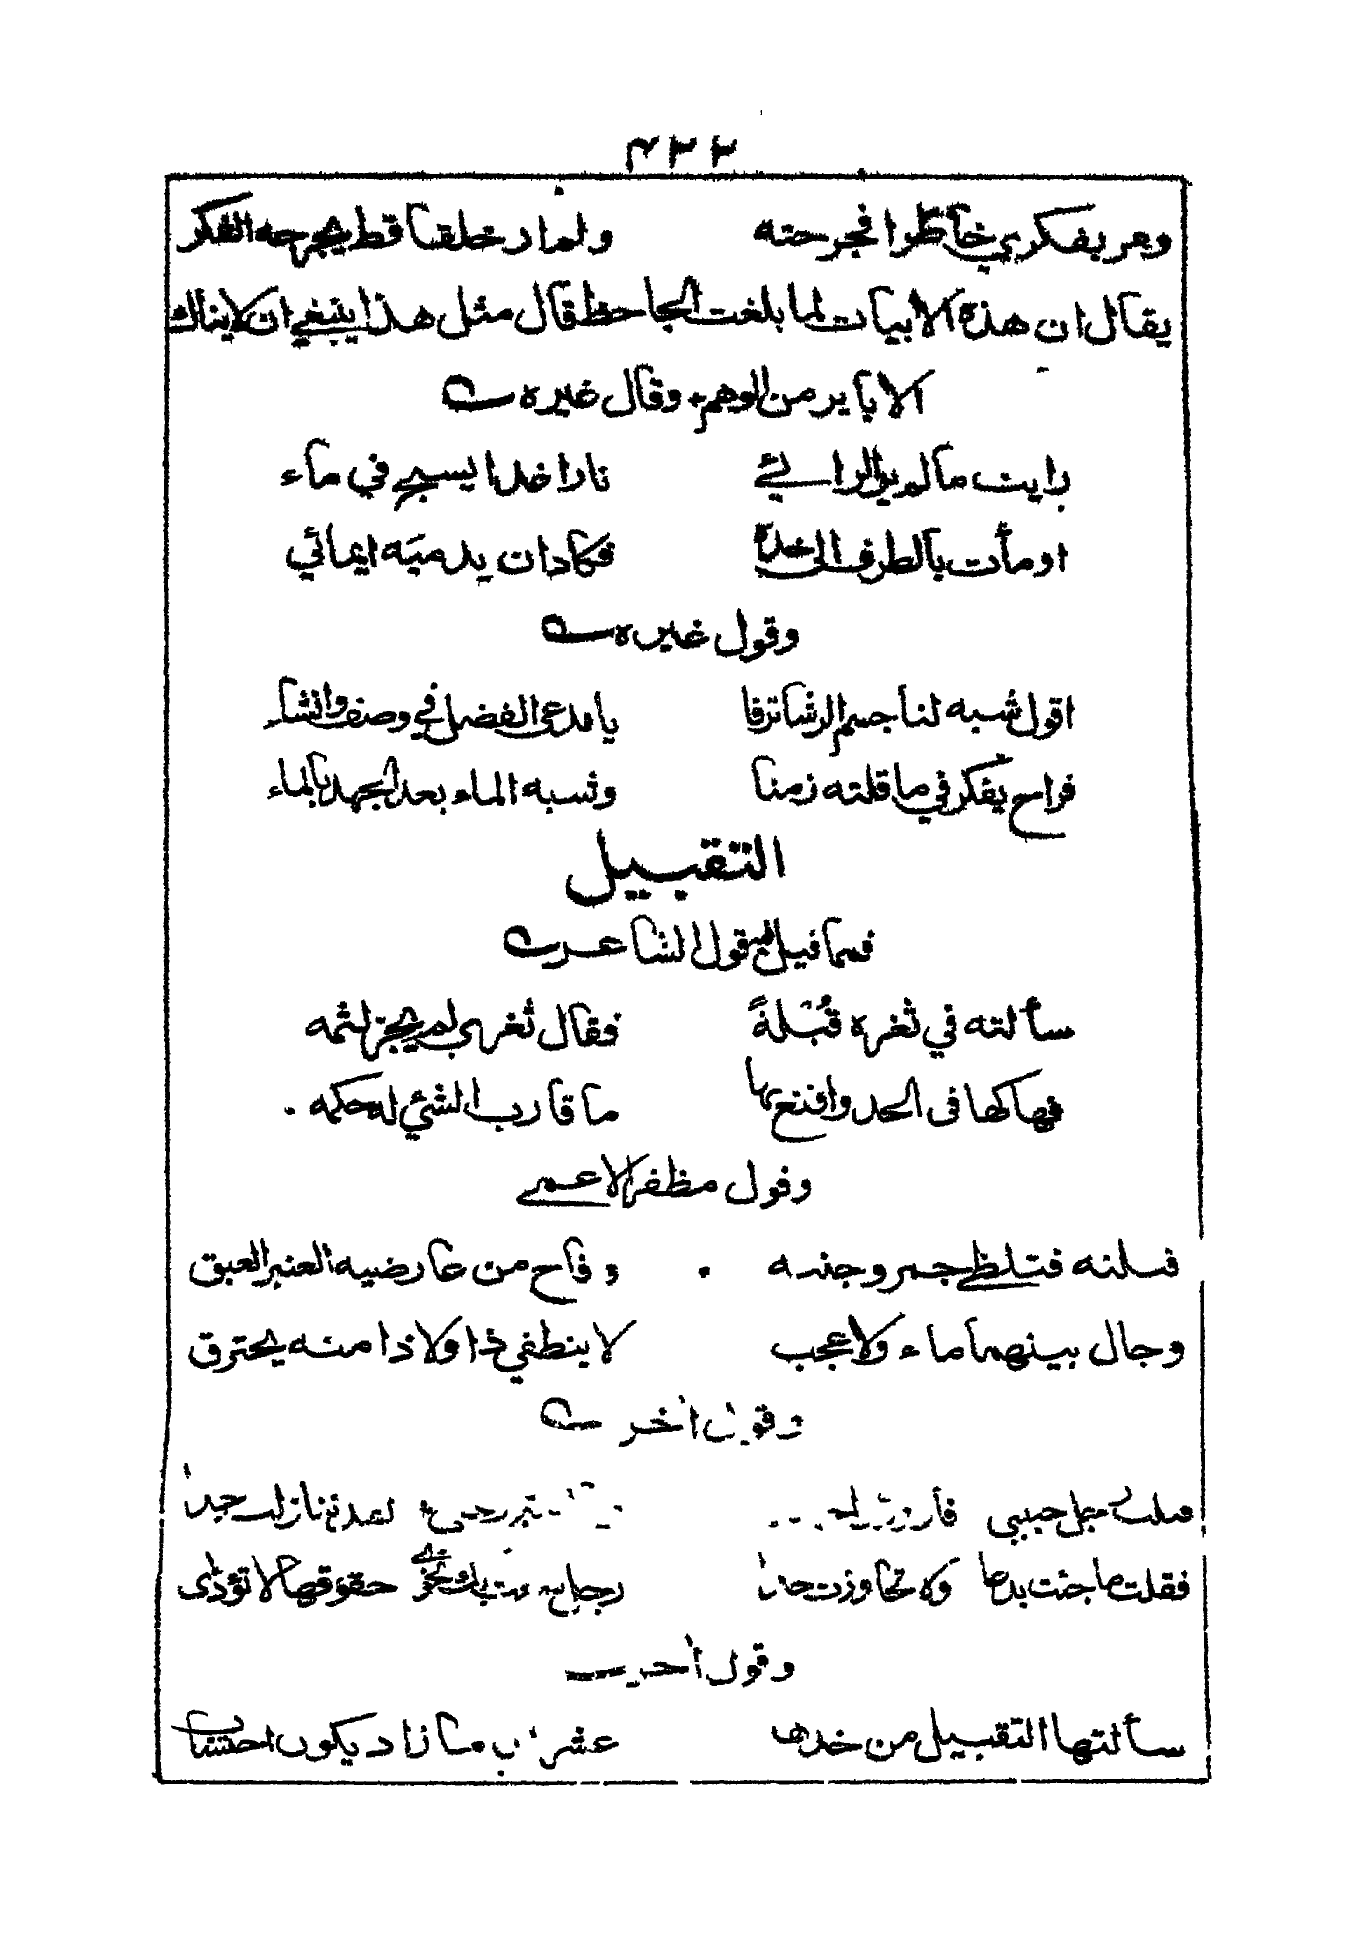 ۴۲۲
ومر بفكري خاطرا فجرحته ولم ار خلقا قط يجرحه الفكر
يقال ان هذه الابيات لما بلغت الجاحظ قال مثل هذا ينبغي ان لا يناك
الا باير من الوهم وقال غيره
رايت مالم ير الرائي نارا غدا يسبح في ماء
اومأت بالطرف الى خده فكاد ان يدميه ايمائي
وقول غيره
اقول شبه لنا جسم الرشا ترفا يا مدعى الفضل في وصف وانشاء
فراح يفكر في ما قلته زمنا وشبه الماء بعد الجهد بالماء
التقبيل
فمما قيل فيه قول الشاعر
سألته في ثغره قُبلةً فقال ثغري لم يجز لثمه
فهاكها فى الخد واقنع بها ما قارب الشئ له حكمه
وقول مظفر الاعمى
قبلته فتلظى جمر وجنته وفاح من عارضيه العنبر العبق
وجال بينهما ماء ولا عجب لا ينطفي ذا ولا ذا منه يحترق
وقول اخر
قبلت رجل حبيبي لقد تنازلت جدا
فقلت ما جئت بدعا ولا تجاوزت حدا حقوقها لا تؤدى
وقول اخر
سألتها التقبيل من خدها عشرا وما زاد يكون احتساب